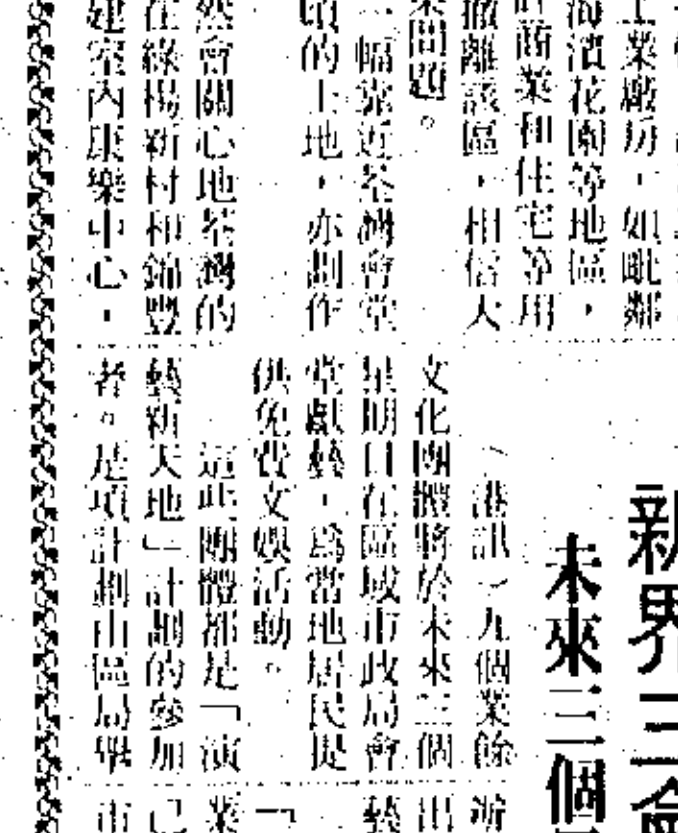 新界三
未來三個
工業廠房，如毗鄰
海濱花園等地區，
商業和住宅等用
撤離該區，相信大
問題。
一幅靠近荃灣會堂
頃的土地，亦劃作
然會關心地荃灣的
在綠楊新村和錦豐
建室內康樂中心，
（港訊）九個業餘
文化團體將於未來三個
星期日在區域市政局會
堂獻藝，為當地居民提
供免費文娛活動。
這些團體都是「演
藝新天地」計劃的參加
者。是項計劃由區局舉
出
藝
「
業
已
市